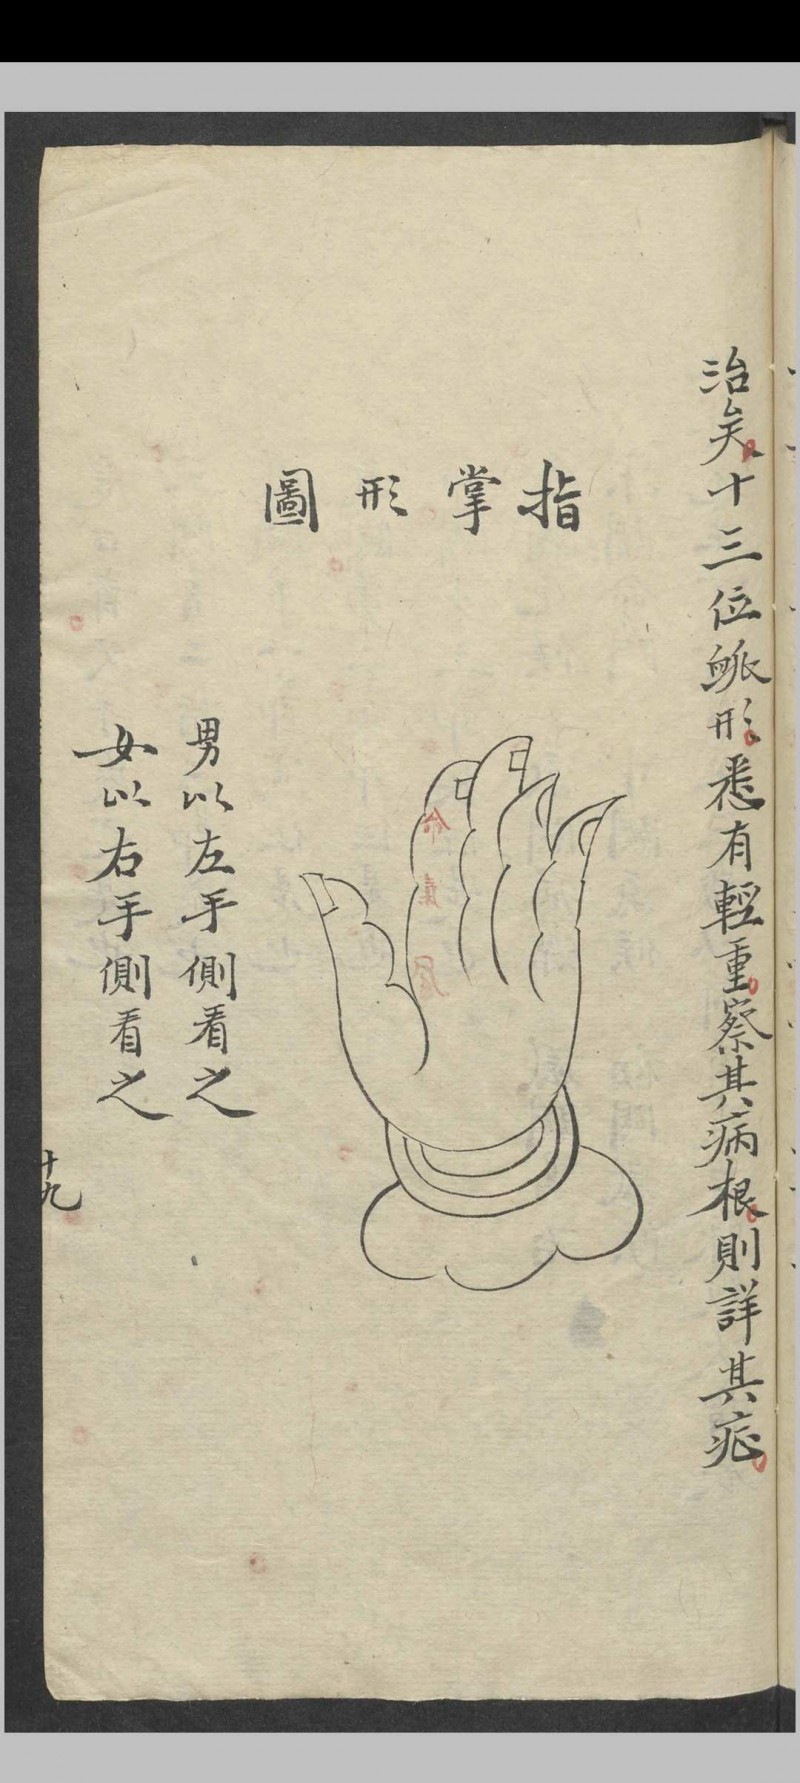 治矣十三位䘑形悉有輕重察其病根則詳其症
指掌形圖
命
氣
風
男以左手側看之
女以右手側看之
十九